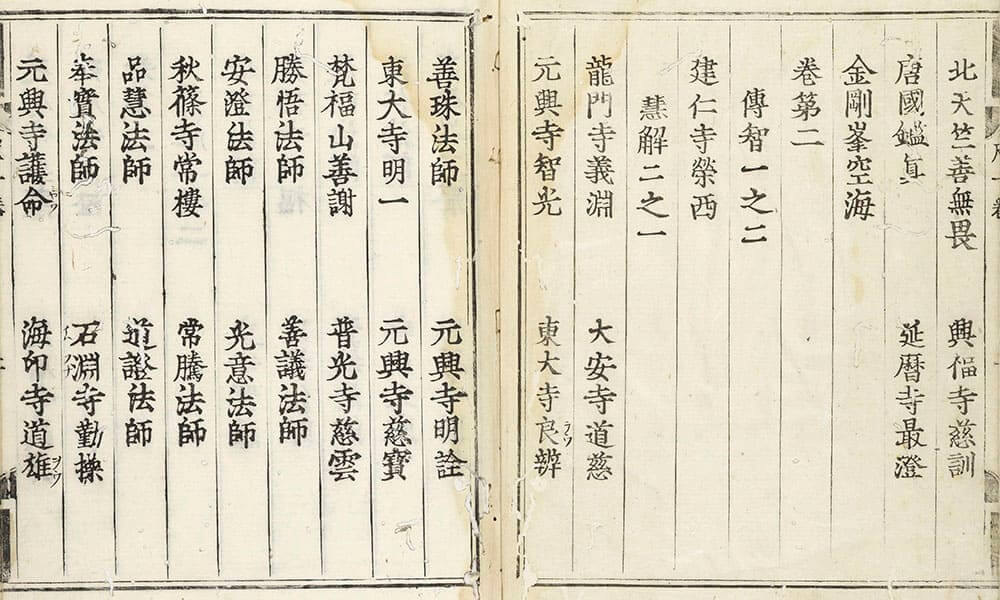 北天竺善無畏　興福寺慈訓
唐國鑑真　延曆寺最澄
金剛峯空海
卷第二
傳智一之二
建仁寺榮西
慧解二之一
龍門寺義淵　大安寺道慈
元興寺智光　東大寺良辨
善珠法師　元興寺明詮
東大寺明一　元興寺慈寶
梵福山善謝　普光寺慈雲
勝悟法師　善議法師
安澄法師　光意法師
秋篠寺常樓　常騰法師
品慧法師　道證法師
奉實法師　石淵寺勤操
元興寺護命　海印寺道雄